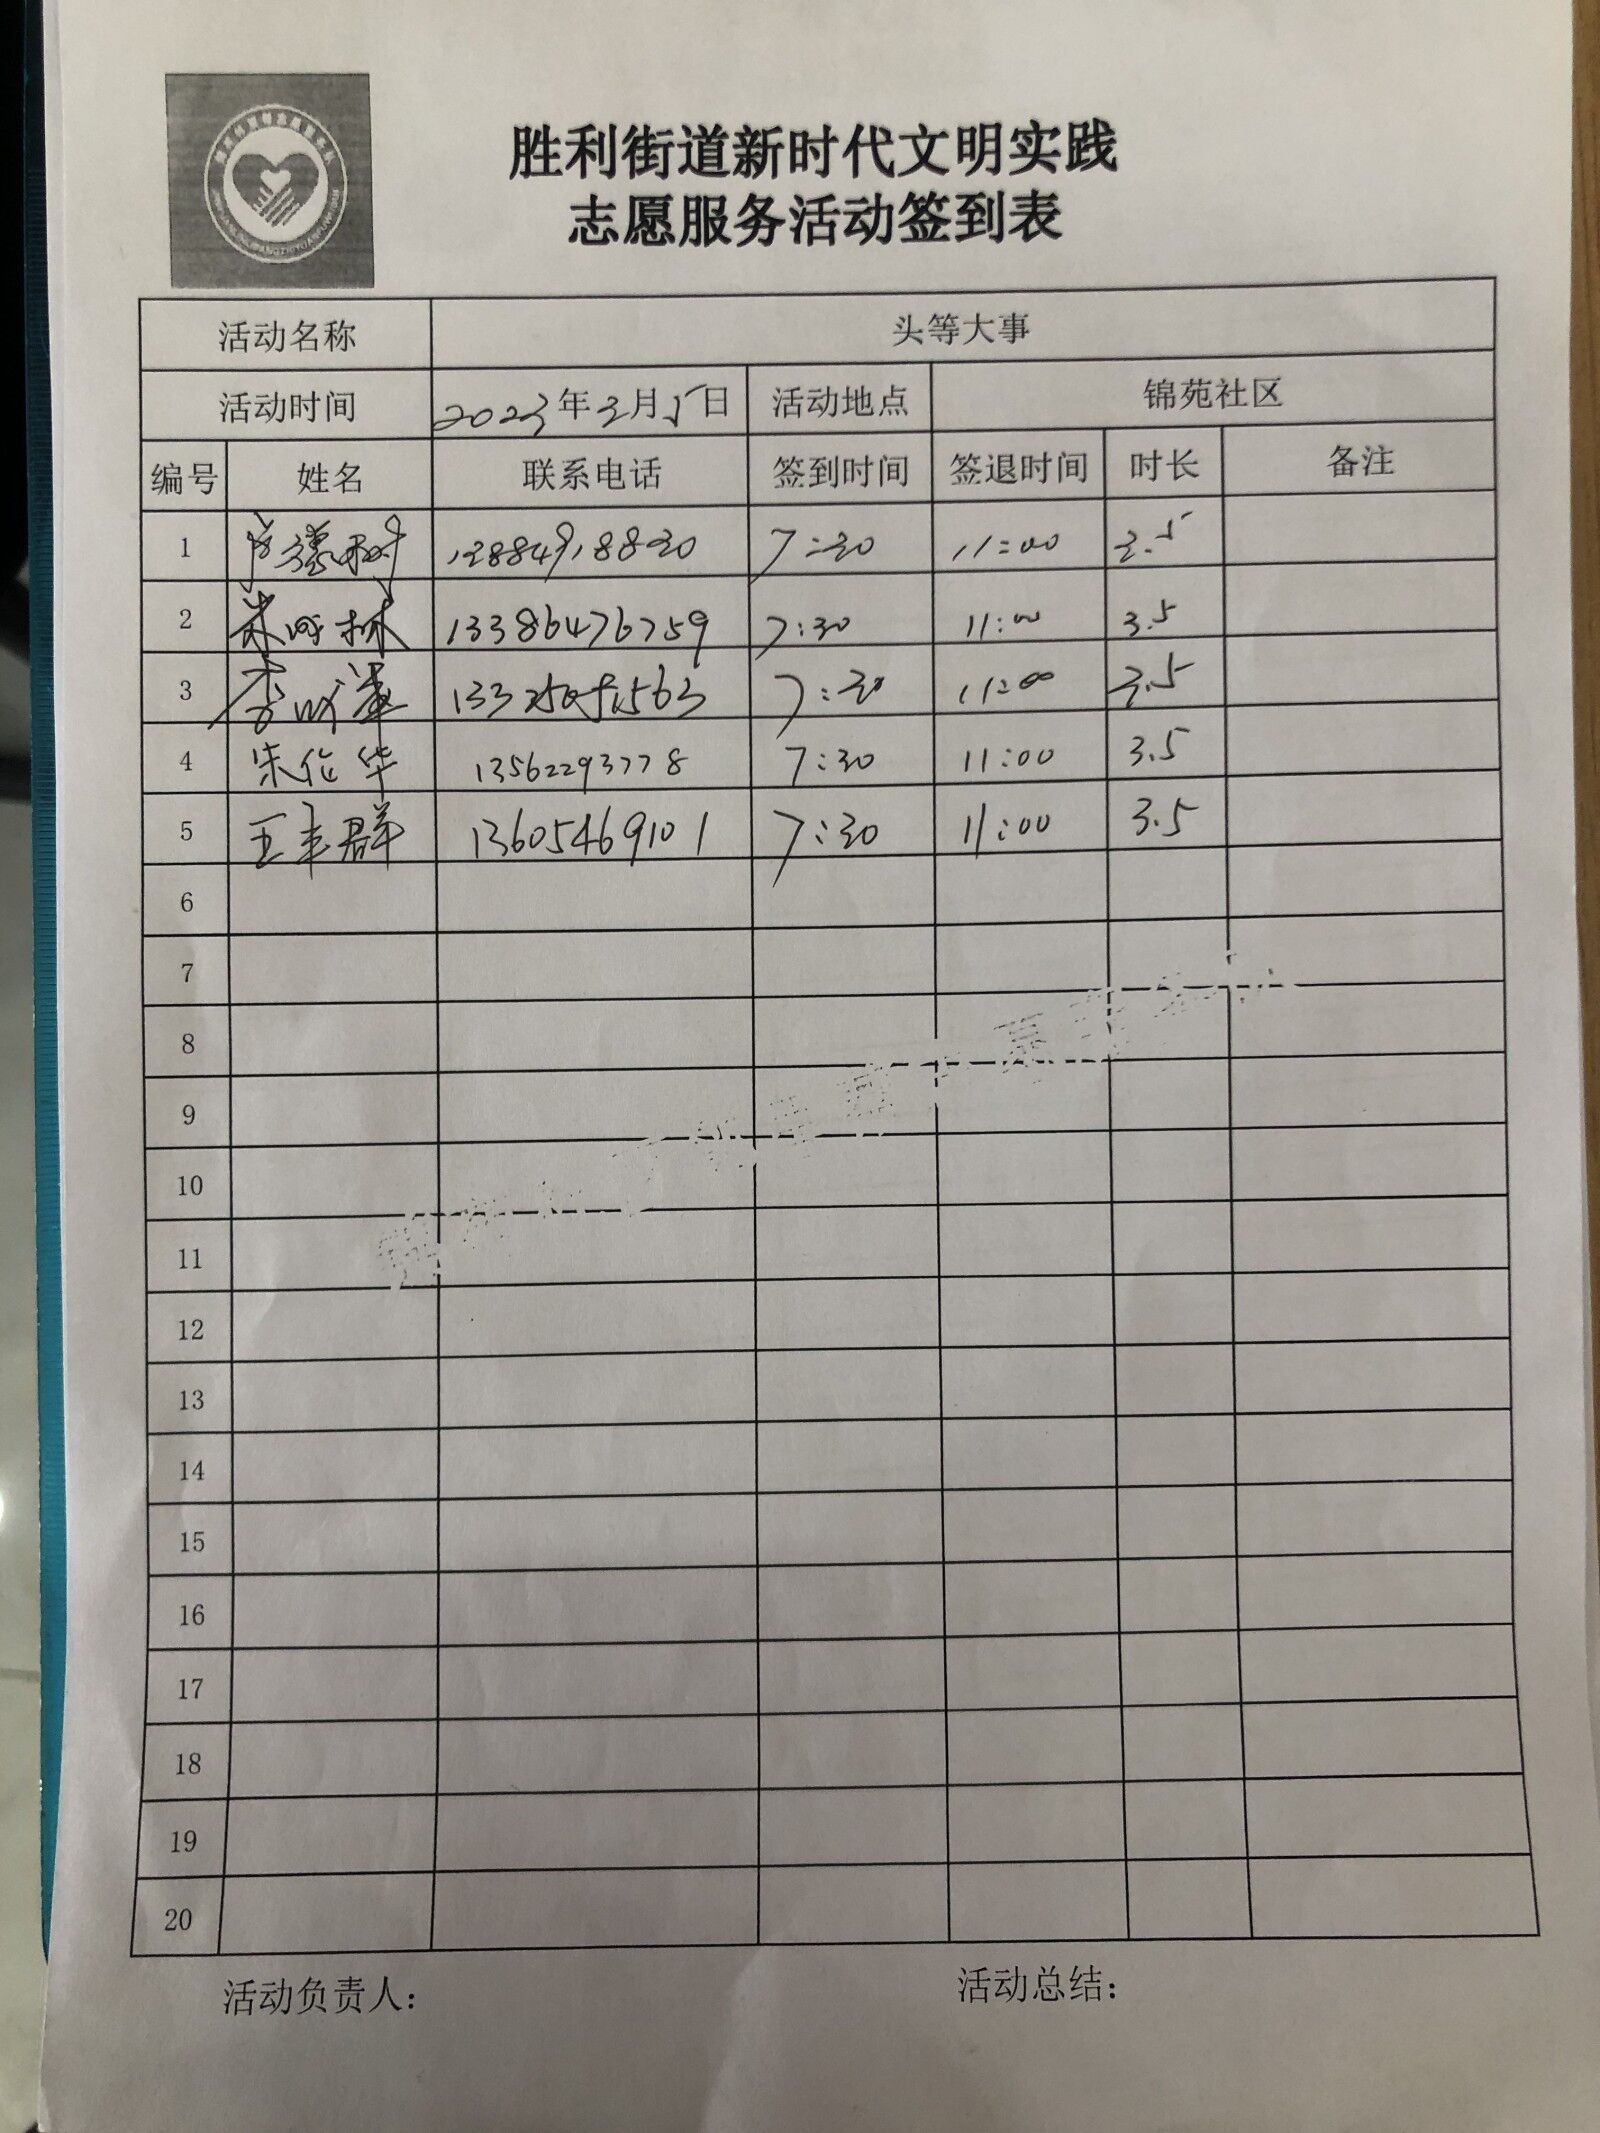 胜利街道新时代文明实践
志愿服务活动签到表
活动名称 头等大事
活动时间 2023年3月5日 活动地点 锦苑社区
编号 姓名 联系电话 签到时间 签退时间 时长 备注
1 7:30 11:00 3.5
2 13386476759 7:30 11:00 3.5
3 7:30 11:00 3.5
4 13562293778 7:30 11:00 3.5
5 王丰群 13605469101 7:30 11:00 3.5
6
7
8
9
10
11
12
13
14
15
16
17
18
19
20
活动负责人： 活动总结：